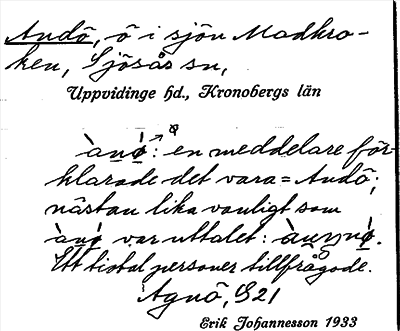 Andö, ö i sjön Madkro-
ken, Sjösås sn,
Uppvidinge hd., Kronobergs län
en meddelare för-
klarade det vara = Andö;
nästan lika vanligt som
var uttalet:
Ett tiotal personer tillfrågade.
Agnö, S21
Erik Johannesson 1933